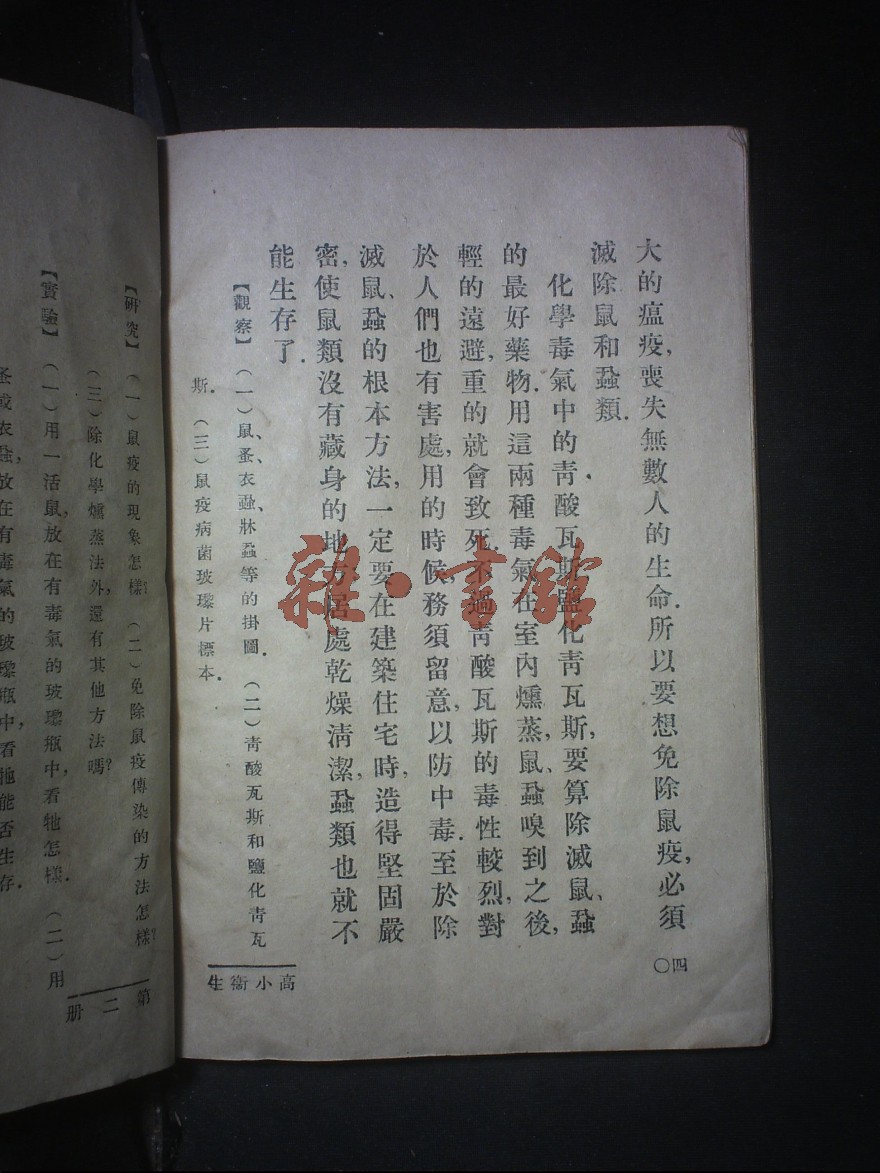 大的瘟疫,喪失無數人的生命.所以要想免除鼠疫,必須
滅除鼠和蝨類.
化學毒氣中的靑酸瓦斯鹽化靑瓦斯,要算除滅鼠、蝨
的最好藥物.用這兩種毒氣在室內燻蒸,鼠、蝨嗅到之後,
輕的遠避,重的就會致死.不過靑酸瓦斯的毒性較烈,對
於人們也有害處,用的時候,務須留意,以防中毒.至於除
滅鼠、蝨的根本方法,一定要在建築住宅時,造得堅固嚴
密,使鼠類沒有藏身的地方;居處乾燥淸潔,蝨類也就不
能生存了.
【觀察】(一)鼠、蚤、衣蝨、牀蝨等的掛圖.(二)靑酸瓦斯和鹽化靑瓦
斯.(三)鼠疫病菌玻瓈片標本.
高小衞生
四〇
【研究】(一)鼠疫的現象怎樣?(二)免除鼠疫傳染的方法怎樣?
(三)除化學燻蒸法外,還有其他方法嗎?
【實驗】(一)用一活鼠,放在有毒氣的玻瓈瓶中,看牠怎樣.(二)用
蚤或衣蝨,放在有毒氣的玻瓈瓶中,看牠能否生存.
第二册
雜·書館